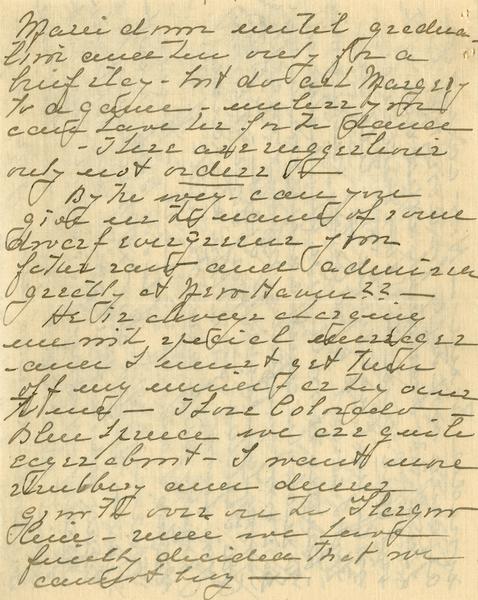 Marie down until gradua-
tion and then only for a
brief stay - but do ask Margery
to a game - unless you
can't have her for the dance
- These are suggestions
only not orders
By the way - can you
give me the names of some
dwarf evergreens your
father saw and admired
greatly at New Haven?? -
He is always charging
me with special messages
- and I must get them
off my mind as they come
to me - I love Colorado
Blue Spruce we are quite
eager about - I want more
shrubbery and denser
growth over on the
line - since we have
finally decided that we
cannot buy -